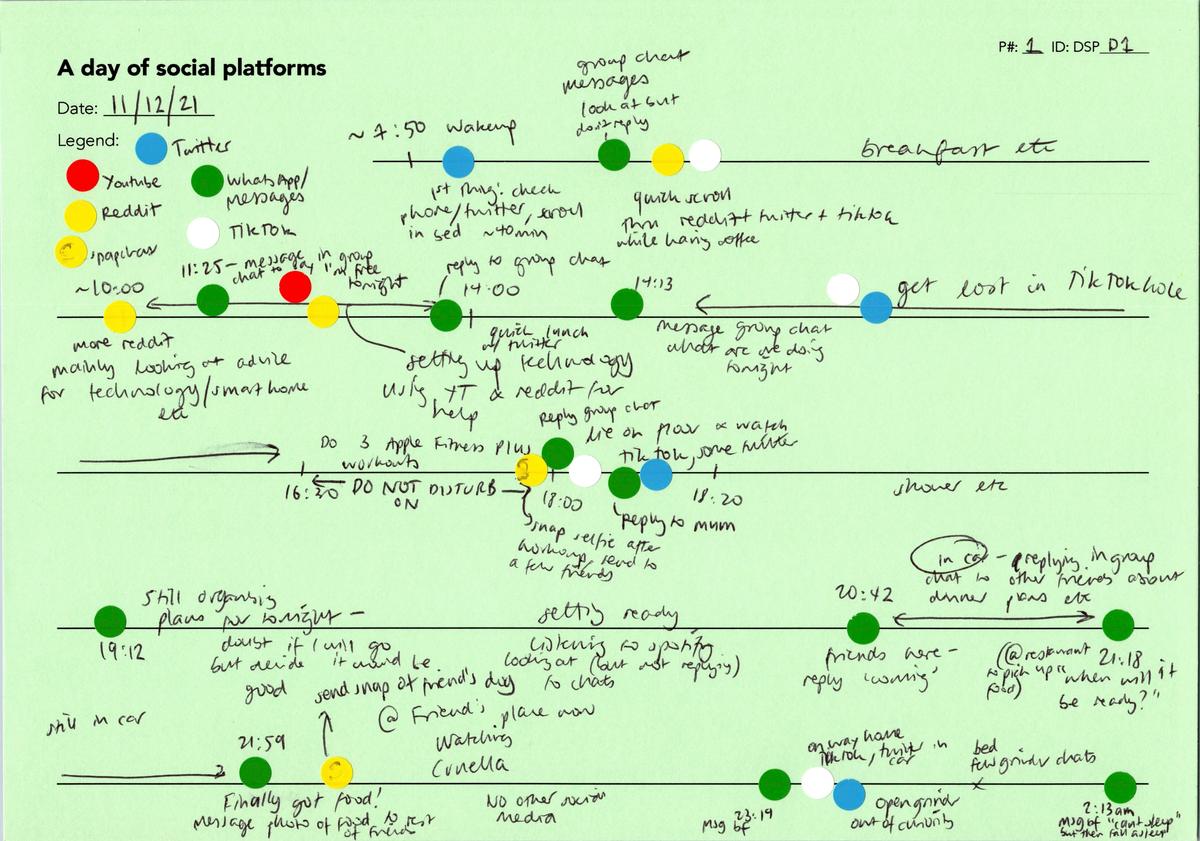 P#: 1 ID: DSP D1
A day of social platforms
Date: 11/12/21
Legend:
Twitter
Youtube
WhatsApp/
messages
Reddit
TikTok
snapchat
~ 7:50 wakeup
1st thing: check
phone/twitter, scroll
in bed ~40min
group chat
messages
look at but
don't reply
quick scroll
thru reddit + twitter + tiktok
while having coffee
breakfast etc
~10:00
more reddit
mainly looking at advice
for technology/smart home
etc
11:25 - message in group
chat to say I'm free
tonight
setting up technology
using YT & reddit for
help
reply to group chat
14:00
quick lunch
w/ twitter
14:13
message group chat
what are we doing
tonight
get lost in TikTok hole
16:30
Do 3 Apple Fitness Plus
workouts
DO NOT DISTURB
ON
snap selfie after
workout, send to
a few friends
Reply group chat
18:00
lie on floor & watch
tiktok, some twitter
reply to mum
18:20
shower etc
19:12
Still organising
plans for tonight -
doubt if I will go
but decide it would be
good
getting ready
listening to spotify
looking at (but not replying)
to chats
20:42
friends here -
reply 'coming'
in car - replying in group
chat to other friends about
dinner plans etc
21:18
(@restaurant
to pick up
food)
"when will it
be ready?"
still in car
21:59
Finally got food!
message photo of food to rest
of friends
send snap of friend's dog
@ Friend's place now
Watching
Cruella
No other social
media
23:19
msg bf
on way home
TikTok, twitter in
car
open grindr
out of curiosity
bed
few grindr chats
2:13am
msg bf "can't sleep"
but then fall asleep